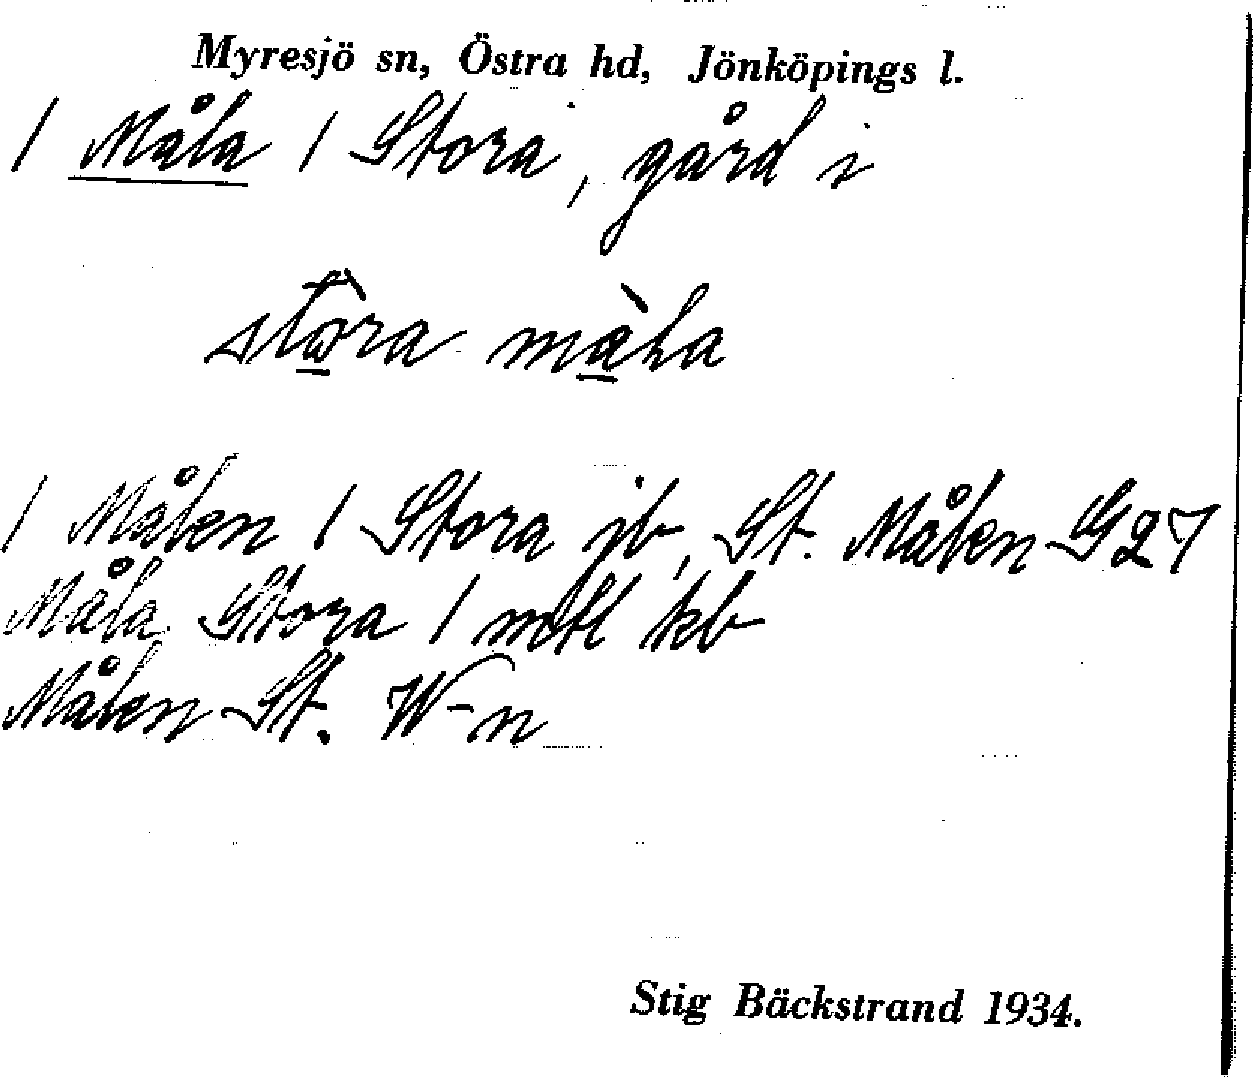 Myresjö sn, Östra hd, Jönköpings l.
/ Måla / Stora, gård i
/ Målen / Stora jb, St. Målen G27
Måla Stora 1 mtl kb
Målen St. W-n
Stig Bäckstrand 1934.